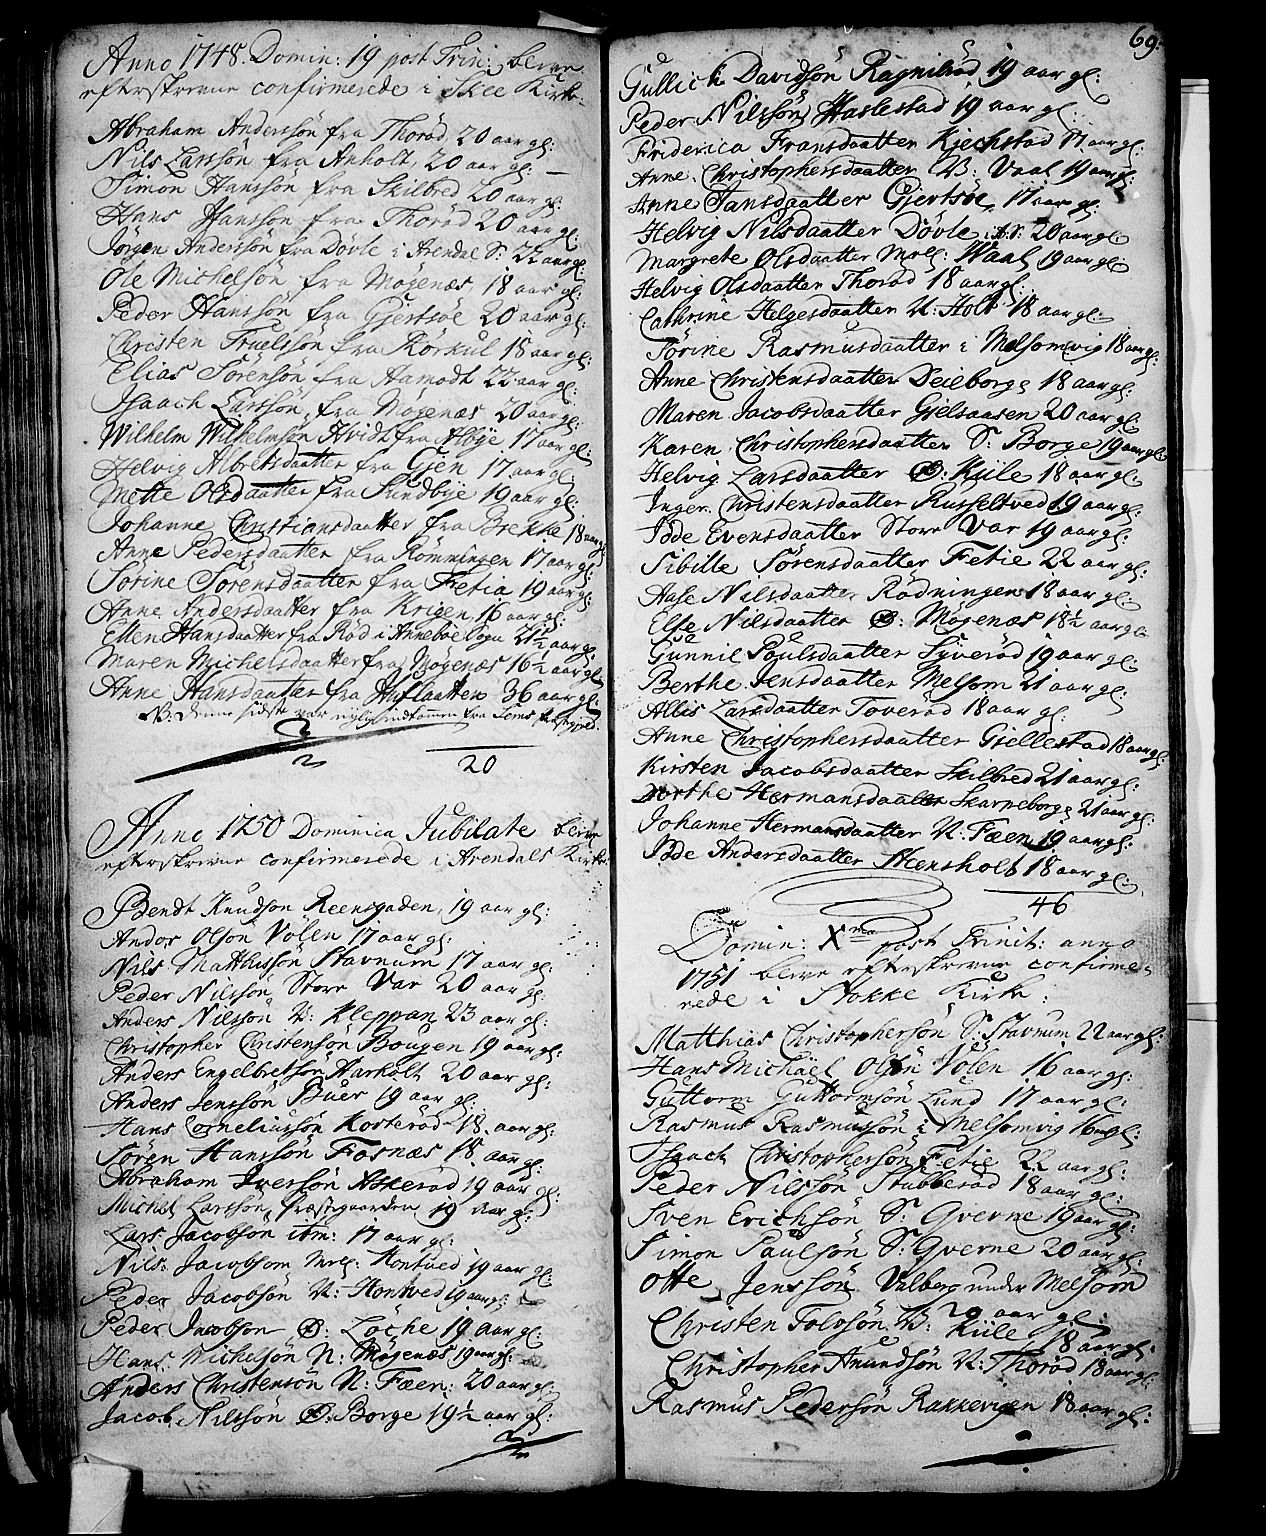 Anno 1748. Domin: 19 post Trin: bleve
efterskrevne confirmerede i Skee Kirke.
Abraham Anderssön fra Thoröd, 20 aar gl:
Nils Larssön fra Anholt, 20 aar gl:
Simon Hanssön fra Skilbred 20 aar gl:
Hans Hanssön fra Thoröd 20 aar gl:
Jörgen Anderssön fra Dövle i Arendal S: 22 aar gl:
Ole Michelsön fra Mögenæs 18 aar gl:
Peder Hanssön fra Gjertsöe 20 aar gl:
Christen Truelssön fra Rörkul 18 aar gl:
Elias Sörensön fra Aamodt 22 aar gl:
Isaach Larssön, fra Mögenæs 20 aar gl:
Wilhelm Wilhelmsön Hvidt fra Albye 17 aar gl:
Helvig Albretsdaatter fra Gjen 17 aar gl:
Mette Olsdaatter fra Sundbye 19 aar gl:
Johanne Christiansdaatter fra Brekke 18 aar gl:
Anne Pedersdaatter fra Römmingen 17 aar gl:
Sörine Sörensdaatter fra Fretia 19 aar gl:
Anne Andersdaatter fra Krigen, 16 aar gl:
Ellen Hansdaatter fra Röd i Anneböe Sogn 21 1/2 aar gl:
Maren Michelsdaatter fra Mögenæs 16 1/2 aar gl:
Anne Hansdaatter fra Huflaatten 36 aar gl:
NB. denne sidste var nylig indkommen fra
20
Anno 1750 Dominica Jubilate bleve
efterskrevne confirmerede i Arendals Kirke:
Bendt Knudsön Reensgaden, 19 aar gl:
Anders Olsön Völen 17 aar gl:
Nils Matthissön Stavnum 17 aar gl:
Peder Nilssön Store Var 20 aar gl:
Anders Nilssön N: Kleppan 23 aar gl:
Christopher Christensön Bougen 19 aar gl:
Anders Engelbretsön Harholt 20 aar gl:
Anders Jenssön Buer 19 aar gl:
Hans Corneliussön Kosteröd 18. aar gl:
Sören Hanssön Fosnæs 18 aar gl:
Abraham Iversön Askeröd 19 aar gl:
Michel Larssön, Præstegaarden 19 aar gl:
Lars Jacobsön itm: 17 aar gl:
Nils: Jacobsön Mell: Hontved 19 aar gl:
Peder Jacobsön N: Hontved 19 aar gl:
Peder Jacobsön Ø: Löche 19 aar gl:
Hans Michelsön N: Mögenæs 19 aar gl:
Anders Christensön N: Fæen: 20 aar gl:
Jacob Nilssön Ø: Borge 19 1/2 aar gl:
69.
Gullich Davidsön Ragnilröd 19 aar gl:
Peder Nilssön Haslestad 19 aar gl:
Friderica Fransdaatter Kjechstad 17 aar gl:
Anne Christophersdaatter N: Vaal 19 aar gl:
Anne Jansdaatter Gjertsöe, 17 aar gl:
Helvig Nilsdaatter Dövle i A: S: 20 aar gl:
Margrete Olsdaatter Mell: Waal 19 aar gl:
Helvig Olsdaatter Thoröd 18 aar gl:
Cathrine Helgesdaatter N: Holt 18 aar gl:
Sörine Rasmusdaatter i Melsomvig 18 aar gl:
Anne Christensdaatter Deileborg 18 aar gl:
Maren Jacobsdaatter Gjelsaasen 20 aar gl:
Karen Christophersdaatter S: Borge 19 aar gl:
Helvig Larsdaatter Ø: Kiile 18 aar gl:
Inger Christensdaatter Russeltved 19 aar gl:
Idde Evensdaatter Store Var 19 aar gl:
Sibille Sörensdaatter Fetie 22 aar gl:
Aase Nilsdaatter Rödningen 18 aar gl:
Else Nilsdaatter Ø: Mögenæs 18 1/2 aar gl:
Gunnil Poulsdaatter Syveröd 19 aar gl:
Berthe Jensdaatter Melsom 21 aar gl:
Allis Larsdaatter Toveröd 18 aar gl:
Anne Christophersdaatter Gjellestad 18 aar gl:
Kirsten Jacobsdaatter Skilbred 21 aar gl:
Dorthe Hermansdaatter Skarpeborg 21 aar gl:
Johanne Hermansdaatter N: Fæen 19 aar gl:
Idde Andersdaatter Steensholt 18 aar gl:
46
Domin: Xma post Trinit: anno
1751 bleve efterskrevne confirme-
rede i Stokke Kirke:
Matthias Christophersön S: Stavnum 22 aar gl:
Hans Michäel Olsön Völen 16 aar gl:
Guttorm Guttormsön Lund 17 aar gl:
Rasmus Rasmussön i Melsomvig 16 aar gl:
Isaach Christophersön Fetie 22 aar gl:
Peder Nilssön Stubberöd 18 aar gl:
Sven Erichsön S: Gverne 19 aar gl:
Simon Paulsön S: Gverne 20 aar gl:
Otte Jenssön Valberg under Melsom
20 aar gl:
Christen Tolvsön N: Kiile 18 aar gl:
Christopher Anundsön N: Thoröd 18 aar gl:
Rasmus Pedersön Rakkevigen 18 aar gl: